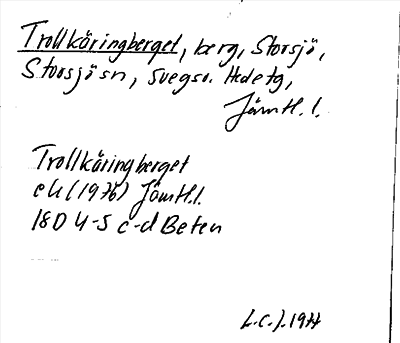 Trollkäringberget, berg, Storsjö,
Storsjö sn, Svegs o. Hede tg,
Jämtl. l.
Trollkäringberget
ek (1976) Jämtl.l.
18D 4-5 c-d Beten
L.C.J. 1977